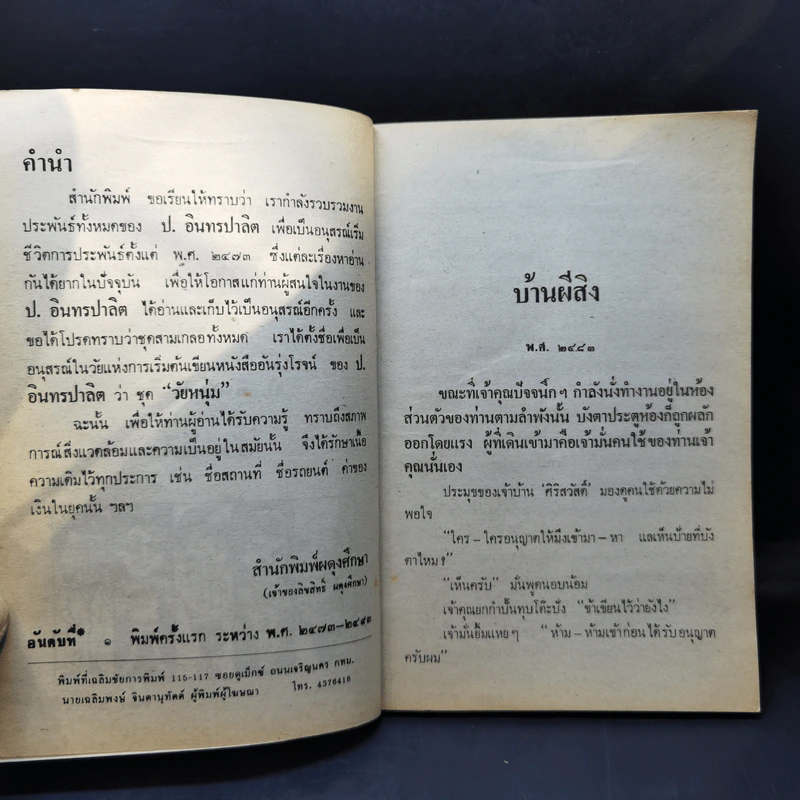 คำนำ
สำนักพิมพ์ ขอเรียนให้ทราบว่า เรากำลังรวบรวมงาน
ประพันธ์ทั้งหมดของ ป. อินทรปาลิต เพื่อเป็นอนุสรณ์เริ่ม
ชีวิตการประพันธ์ตั้งแต่ พ.ศ. ๒๔๗๓ ซึ่งแต่ละเรื่องหาอ่าน
กันได้ยากในปัจจุบัน เพื่อให้โอกาสแก่ท่านผู้สนใจในงานของ
ป. อินทรปาลิต ได้อ่านและเก็บไว้เป็นอนุสรณ์อีกครั้ง และ
ขอได้โปรดทราบว่าชุดสามเกลอทั้งหมด เราได้ตั้งชื่อเพื่อเป็น
อนุสรณ์ในวัยแห่งการเริ่มต้นเขียนหนังสืออันรุ่งโรจน์ ของ ป.
อินทรปาลิต ว่า ชุด "วัยหนุ่ม"
ฉะนั้น เพื่อให้ท่านผู้อ่านได้รับความรู้ ทราบถึงสภาพ
การณ์สิ่งแวดล้อมและความเป็นอยู่ในสมัยนั้น จึงได้รักษาเนื้อ
ความเดิมไว้ทุกประการ เช่น ชื่อสถานที่ ชื่อรถยนต์ ค่าของ
เงินในยุคนั้น ฯลฯ
สำนักพิมพ์ผดุงศึกษา
(เจ้าของลิขสิทธิ์ ผดุงศึกษา)
อันดับที่ ๑ พิมพ์ครั้งแรก ระหว่าง พ.ศ. ๒๔๗๓–๒๔๙๓
พิมพ์ที่เฉลิมชัยการพิมพ์ 115-117 ซอยดูเม็กซ์ ถนนเจริญนคร กทม.
นายเฉลิมพงษ์ จินดานุทัตต์ ผู้พิมพ์ผู้โฆษณา โทร. 4376416
บ้านผีสิง
พ.ศ. ๒๔๘๓
ขณะที่เจ้าคุณปัจจนึกฯ กำลังนั่งทำงานอยู่ในห้อง
ส่วนตัวของท่านตามลำพังนั้น บังตาประตูห้องก็ถูกผลัก
ออกโดยแรง ผู้ที่เดินเข้ามาคือเจ้ามั่นคนใช้ของท่านเจ้า
คุณนั่นเอง
ประมุขของเจ้าบ้าน 'ศิริสวัสดิ์' มองดูคนใช้ด้วยความไม่
พอใจ
"ใคร–ใครอนุญาตให้มึงเข้ามา–หา แลเห็นป้ายที่บัง
ตาไหม?"
"เห็นครับ" มั่นพูดนอบน้อม
เจ้าคุณยกกำปั้นทุบโต๊ะปัง "ข้าเขียนไว้ว่ายังไง"
เจ้ามั่นยิ้มแหยๆ "ห้าม–ห้ามเข้าก่อนได้รับอนุญาต
ครับผม"